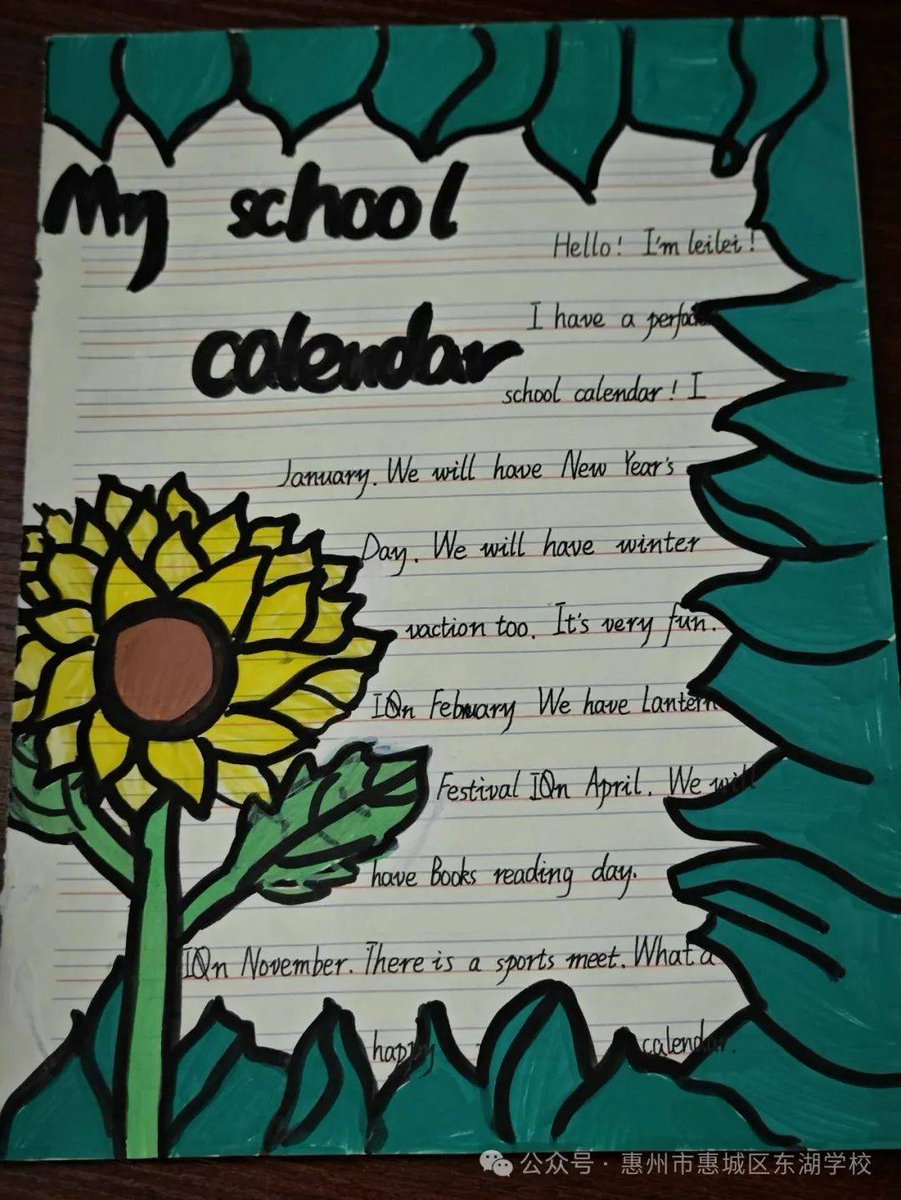 My school
calendar
Hello! I'm leilei!
I have a
school calendar! I
January. We will have New Year's
Day. We will have winter
vaction too. It's very fun.
IOn February We have Lantern
Festival IOn April. We will
have Books reading day.
IOn November. There is a sports meet. What a
happy calendar.
公众号·惠州市惠城区东湖学校